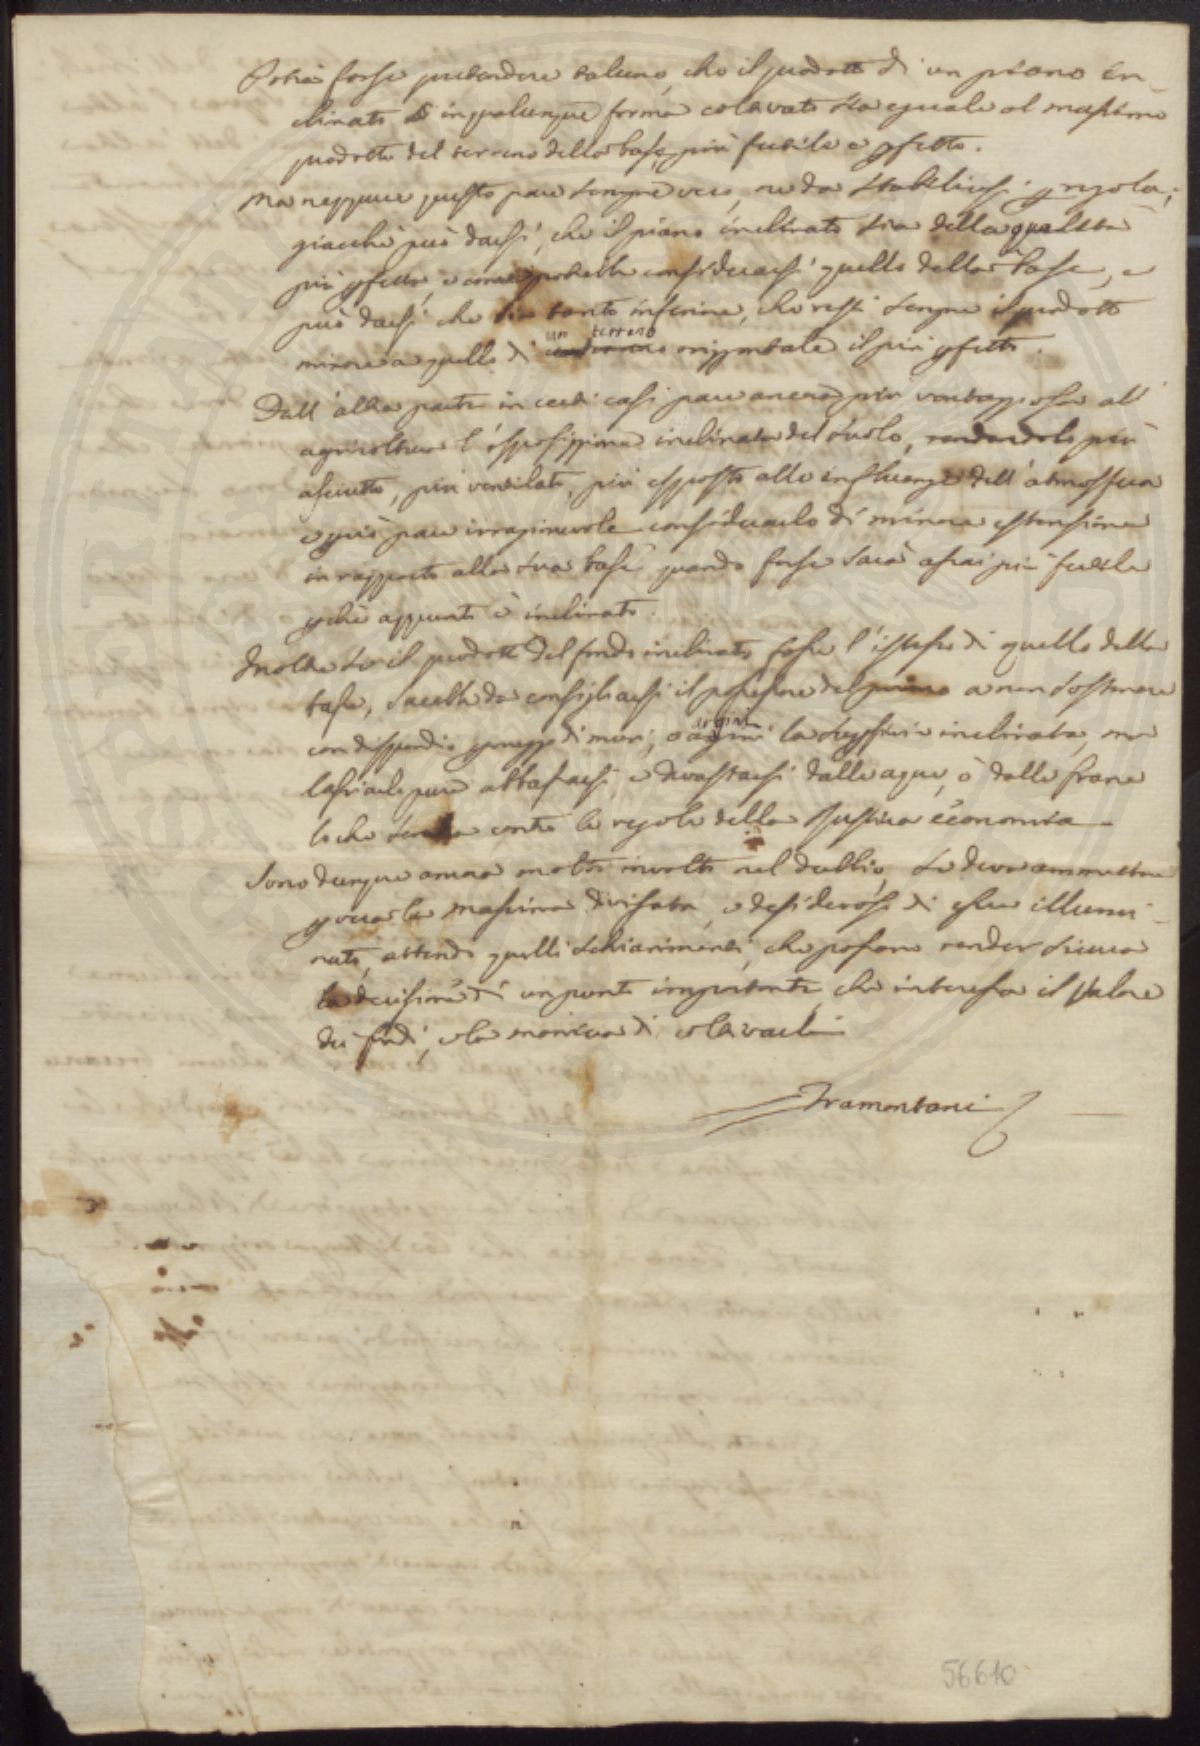 Potrà forse pretendere taluno, che il prodotto di un piano in-
clinato in qualunque forma coltivato sia eguale al massimo
prodotto del terreno della base più fertile e pfetto.
Ma neppure questo pare sempre vero, ne da stabilirsi p regola;
giacchè può darsi, che il piano inclinato sia della qualità
più pfetta, e come potrebbe considerarsi quello della base, e
può darsi che sia tanto inferiore, che resti sempre il prodotto
minore a quello di un terreno orizzontale il più pfetto.
Dall'altra parte in certi casi pare ancora più vantaggiosa all'
agricoltura l'esposizione inclinata del suolo, rendendolo più
asciutto, più ventilato, più esposto alle influenze dell'atmosfera
e però pare irragionevole considerarlo di minore estensione
in rapporto alla sua base quando forse sarà assai più fertile
pchè appunto è inclinato.
Inoltre se il prodotto del fondo inclinato fosse l'istesso di quello della
base, sarebbe da consigliarsi il possessore del primo a non sostenere
con dispendio p mezzo di muri, o argini la superficie inclinata, ma
lasciarla pure abbassarsi, e devastarsi dalle aque, ò dalle frane
lo che sarebbe contro le regole della Rustica economia.
Sono dunque ancora molti involti nel dubbio, se deva ammettersi
p vera la massima divisata, e desiderosi di esser illumi-
nati, attendo quelli schiarimenti, che possono render sicura
la decisione di un punto importante, che interessa il valore
dei fondi, e la maniera di coltivarli
Tramontani
56610